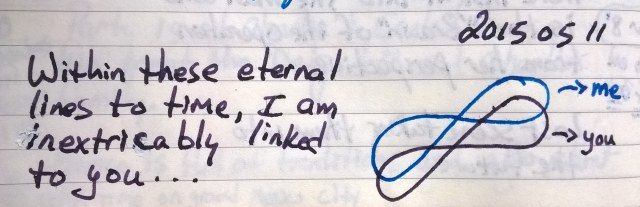 2015 05 11
Within these eternal
lines to time, I am
inextricably linked
to you...
→ me
→ you